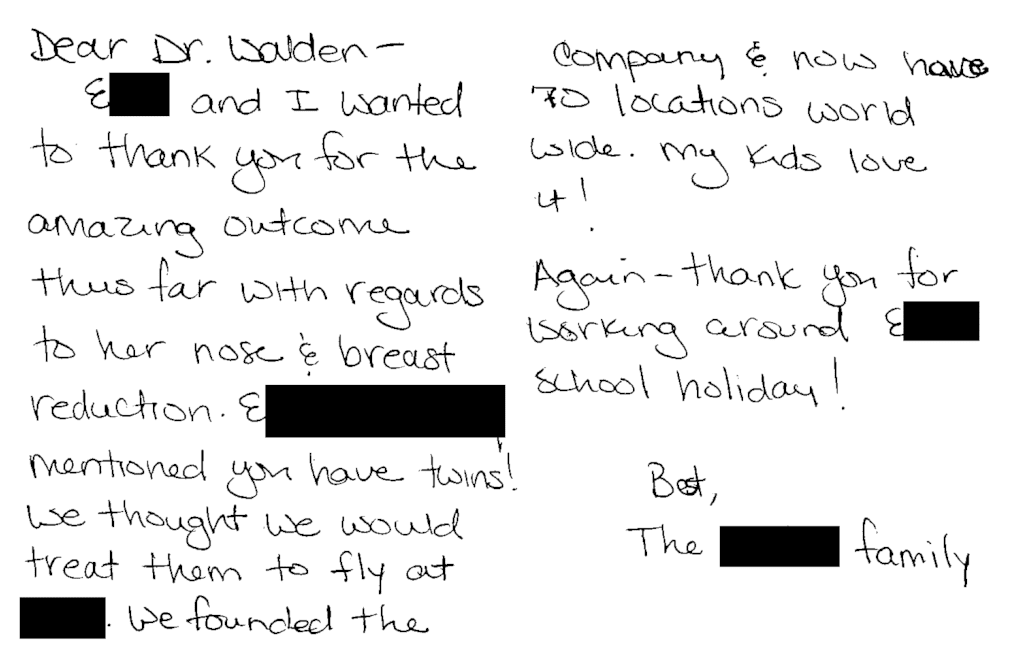 Dear Dr. Walden-
E and I wanted
to thank you for the
amazing outcome
thus far with regards
to her nose & breast
reduction. E
mentioned you have twins!
We thought we would
treat them to fly at
. We founded the
Company & now have
70 locations world
wide. My kids love
it!
Again - thank you for
working around E
school holiday!
Best,
The family